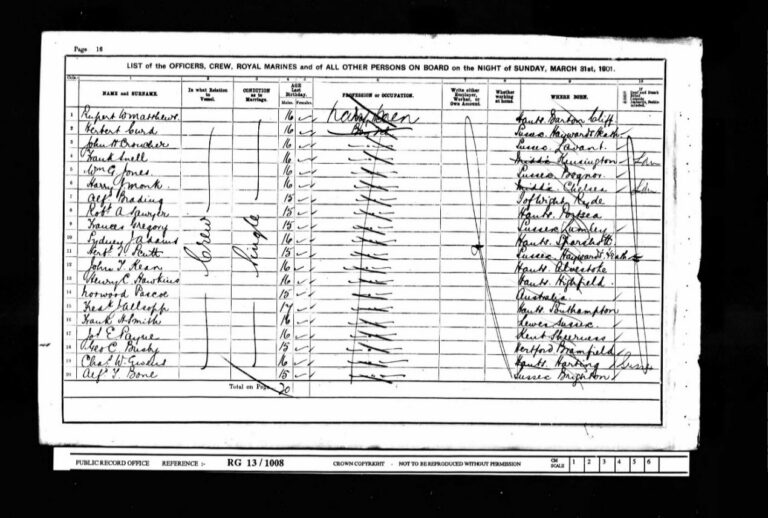 Page 16
LIST of the OFFICERS, CREW, ROYAL MARINES and of ALL OTHER PERSONS ON BOARD on the NIGHT of SUNDAY, MARCH 31st, 1901.
NAME and SURNAME. In what Relation to Vessel. CONDITION as to Marriage. AGE last Birthday. Males. Females. PROFESSION or OCCUPATION. Write either Employer, Worker, or Own Account. Whether working at home. WHERE BORN.
1 Rupert W Matthews 16 Hants Barton Cliff
2 Herbert Curd 16 Sussex Haywards Heath
3 John H Croucher 16 Sussex Lavant
4 Frank Snell 16 Middx Kensington Ldn
5 Wm G Jones 16 Sussex Bognor
6 Harry J Monk 16 Middx Chelsea Ldn
7 Alfd Brading 15 I of Wight Ryde
8 Robt A Sawyer 15 Hants Portsea
9 Frances Gregory 15 Sussex Lumley
10 Sydney J Adams Crew Single 16 Hants Sparsholt
11 Herbt W 15 Sussex Haywards Heath
12 John T Kean 16 Hants Alverstoke
13 Henry C Hawkins 16 Hants Highfield
14 Norwood Pascoe 15 Australia
15 Fredk J Allsopp 17 Hants Southampton
16 Frank A Smith 16 Lewes Sussex
17 E Payne 16 Kent Sheerness
18 Geo C Busby 15 Hertford Bramfield
19 Chas W 16 Hants Harting Sussex
20 Alfd T Bone 15 Sussex Brighton
Total on Page 20
PUBLIC RECORD OFFICE REFERENCE :- RG 13/1008 CROWN COPYRIGHT - NOT TO BE REPRODUCED WITHOUT PERMISSION CM SCALE 1 2 3 4 5 6